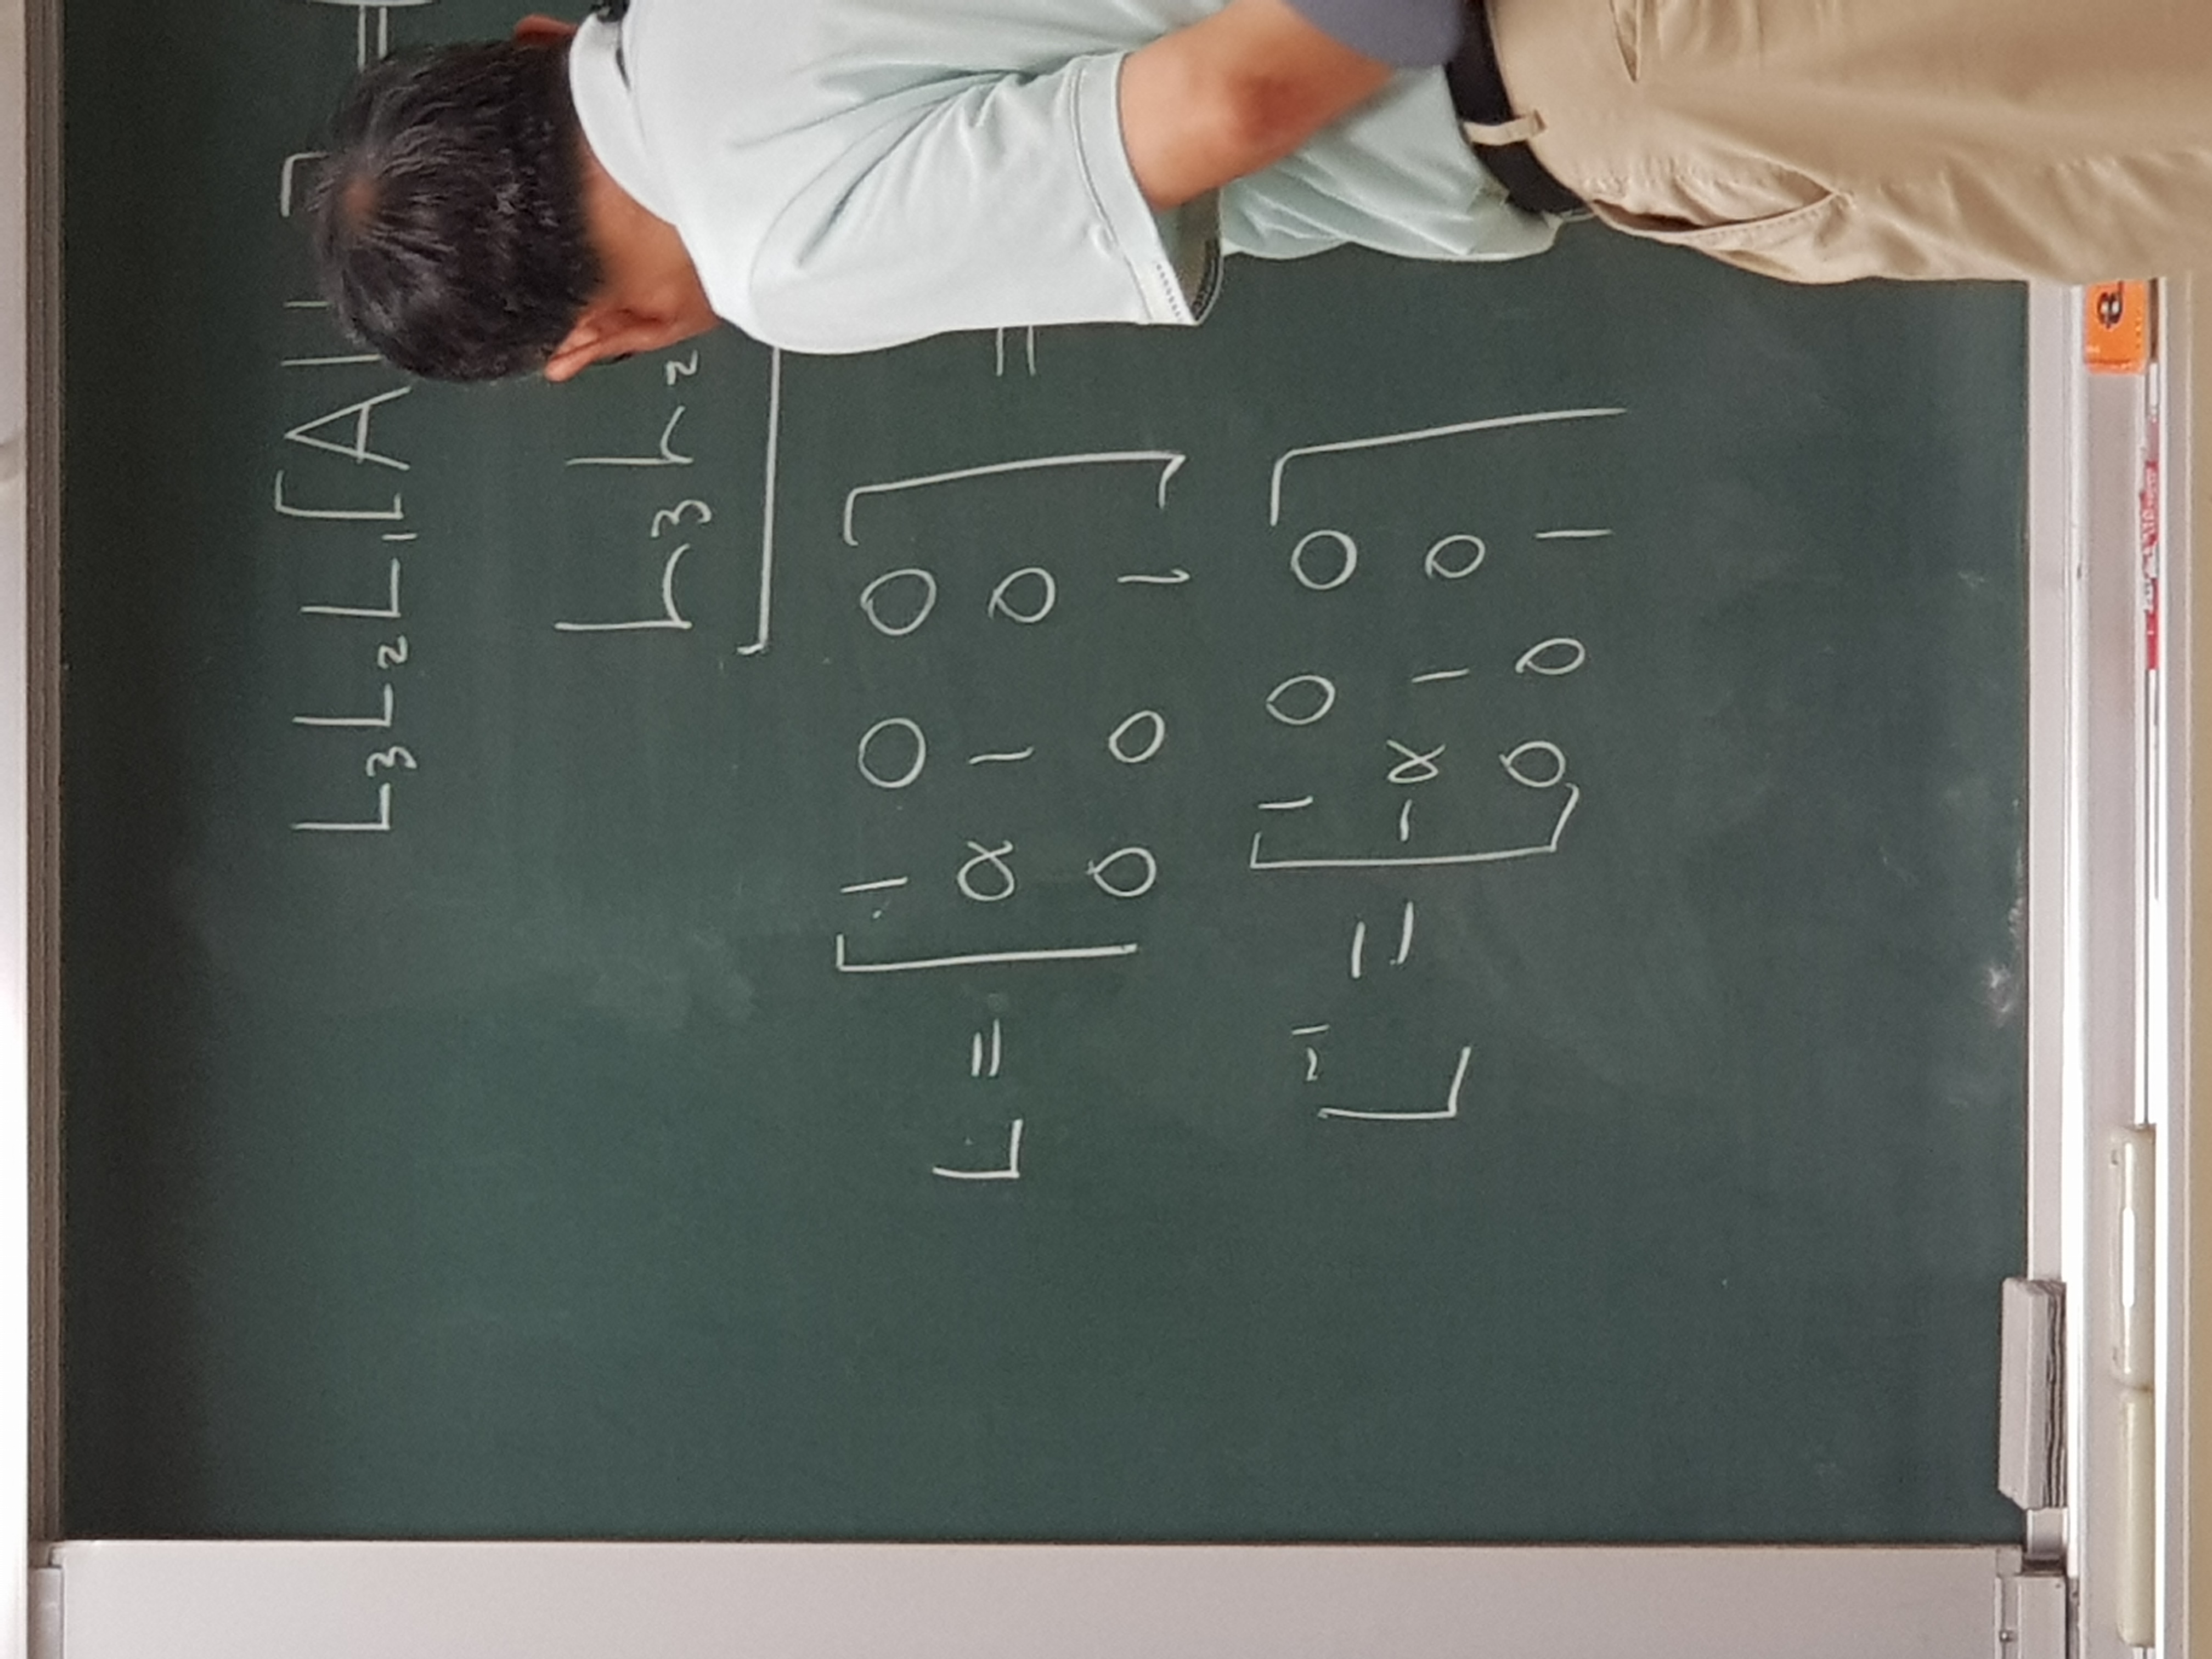 L₃L₂L₁[A| ] =
L₃L₂
L = [ 1 0 0 ] =
α 1 0
0 0 1
L⁻¹ = [ 1 0 0 ]
-α 1 0
0 0 1